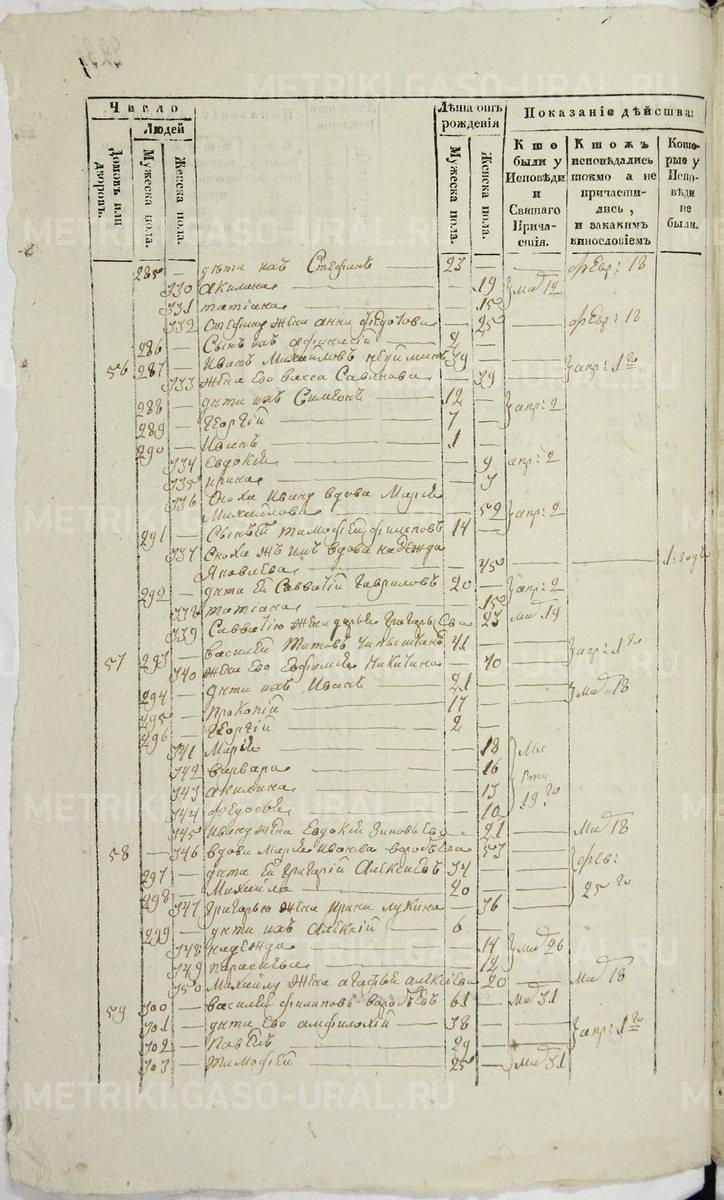 Число
Людей
Домовъ или дворовъ.
Мужеска пола.
Женска пола.
Лѣта отъ рожденія
Мужеска пола.
Женска пола.
Показаніе дѣйства:
Кто были у Исповѣди и Святаго Причастія.
Ктожъ исповѣдались токмо а не причастились, и закакимъ винословіемъ
Которые у Исповѣди не были.
285 — дѣти ихъ Стефанъ — 23 — — февр: 18
330 акилина — — 19 маі 12
331 татіана — — 15
332 Стефану жена анна федотова — 25 — февр: 18
286 — Сынъ их афанасій — 2 —
56 287 — Иванъ Михайловъ — 39 — — апр: 1го
333 жена Его васса Савинова — — 39 —
288 — дѣти ихъ Симеонъ — 12 — апр: 2
289 — Георгій — 7 —
290 — Иванъ — 1 —
334 Евдокия — — 9 апр: 2
335 ирина — — 3
336 Сноха Ивану вдова Марія
Михайлова — — 52 апр: 2
291 — Сынъ Ея тимофей филиповъ 14 —
337 Сноха жъ имъ вдова надежда
Яковлева — — 45 — — 1: годъ
292 — дѣти Ей Савватій Гавриловъ 20 — апр: 2
338 татиана — — 15
339 Савватію жена дарья Григорьева — 23 маі 19
57 293 — василей Титовъ 41 — — апр: 1го
340 жена Его Евфимія Никитина — 40 —
294 — дѣти ихъ Иванъ — 21 — — маі 18
295 — Прокопій — 17 —
296 — Георгій — 2 —
341 Марія — — 18
342 варвара — — 16
343 акилина — — 13 19го
344 федосья — — 10
345 Ивану жена Евдокія Зиновьева — 21 — маі 18
58 — 346 вдова Марія Иванова — 53 — февр:
297 — дѣти Ей Григорій Алексиевъ 34 —
298 — Михайло — 20 — — 25го
347 Григорью жена Ирина лукина — — 36 —
299 — дѣти ихъ Алексій — 6 —
348 надежда — — 14 маі 26
349 парасковья — — 12
350 Михайлу жена агафья алексіева — 20 — маі 18
59 300 — василей филиповъ 61 — маі 31
301 — дѣти Его амфилохій — 38 — — апр: 1го
302 — Павелъ — 29 —
303 — тимофей — 25 — маі 31
METRIKI.GASO-URAL.RU